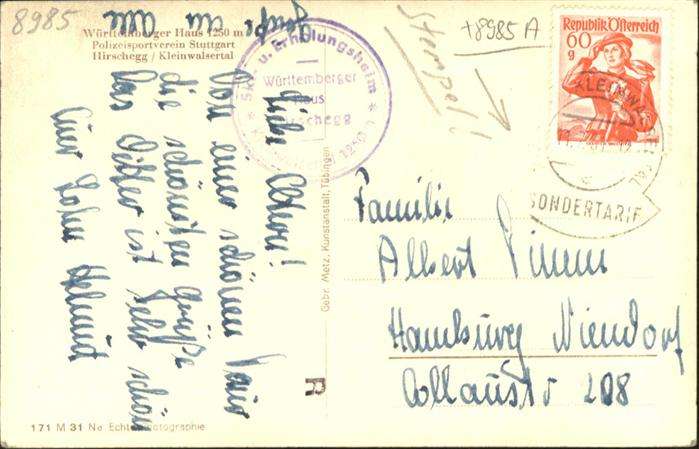 8985
Württemberger Haus 1250 m
Polizeisportverein Stuttgart
Hirschegg / Kleinwalsertal
Ski- u. Erholungsheim
Württemberger
Haus
Hirschegg
1250 m
Stempel!
+8985 A
Republik Österreich
60
g
KLEINW
SONDERTARIF
Liebe Eltern!
Von einer schönen
die schönsten Grüße
Das Wetter ist sehr schön
Euer Sohn Helmut
Grüße an Alle
Gebr. Metz, Kunstanstalt, Tübingen
R
Familie
Albert Timm
Hamburg Niendorf
Collaustr 208
171 M 31 Ne Echte Fotographie